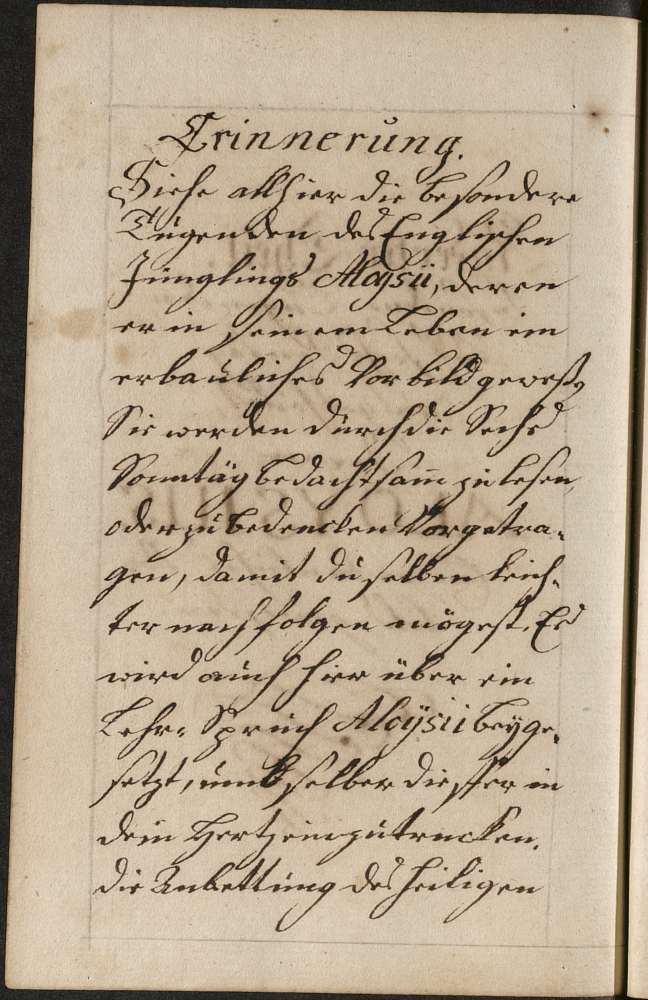 Erinnerung.
Siehe allhier die besondere
Tugenden des Englischen
Jünglings Aloysii, deren
er in seinem Leben ein
erbauliches Vorbild gewest,
Sie werden durch die Sechs
Sonntäg bedachtsam zu lesen,
oder zu bedencken Vorgetra-
gen, damit du selben leich-
ter nachfolgen mögest. Es
wird auch hier über ein
Lehr-Spruch Aloÿsii beyge-
setzt, umb selben in
dein Hertz einzutrucken.
die Anbettung des heiligen